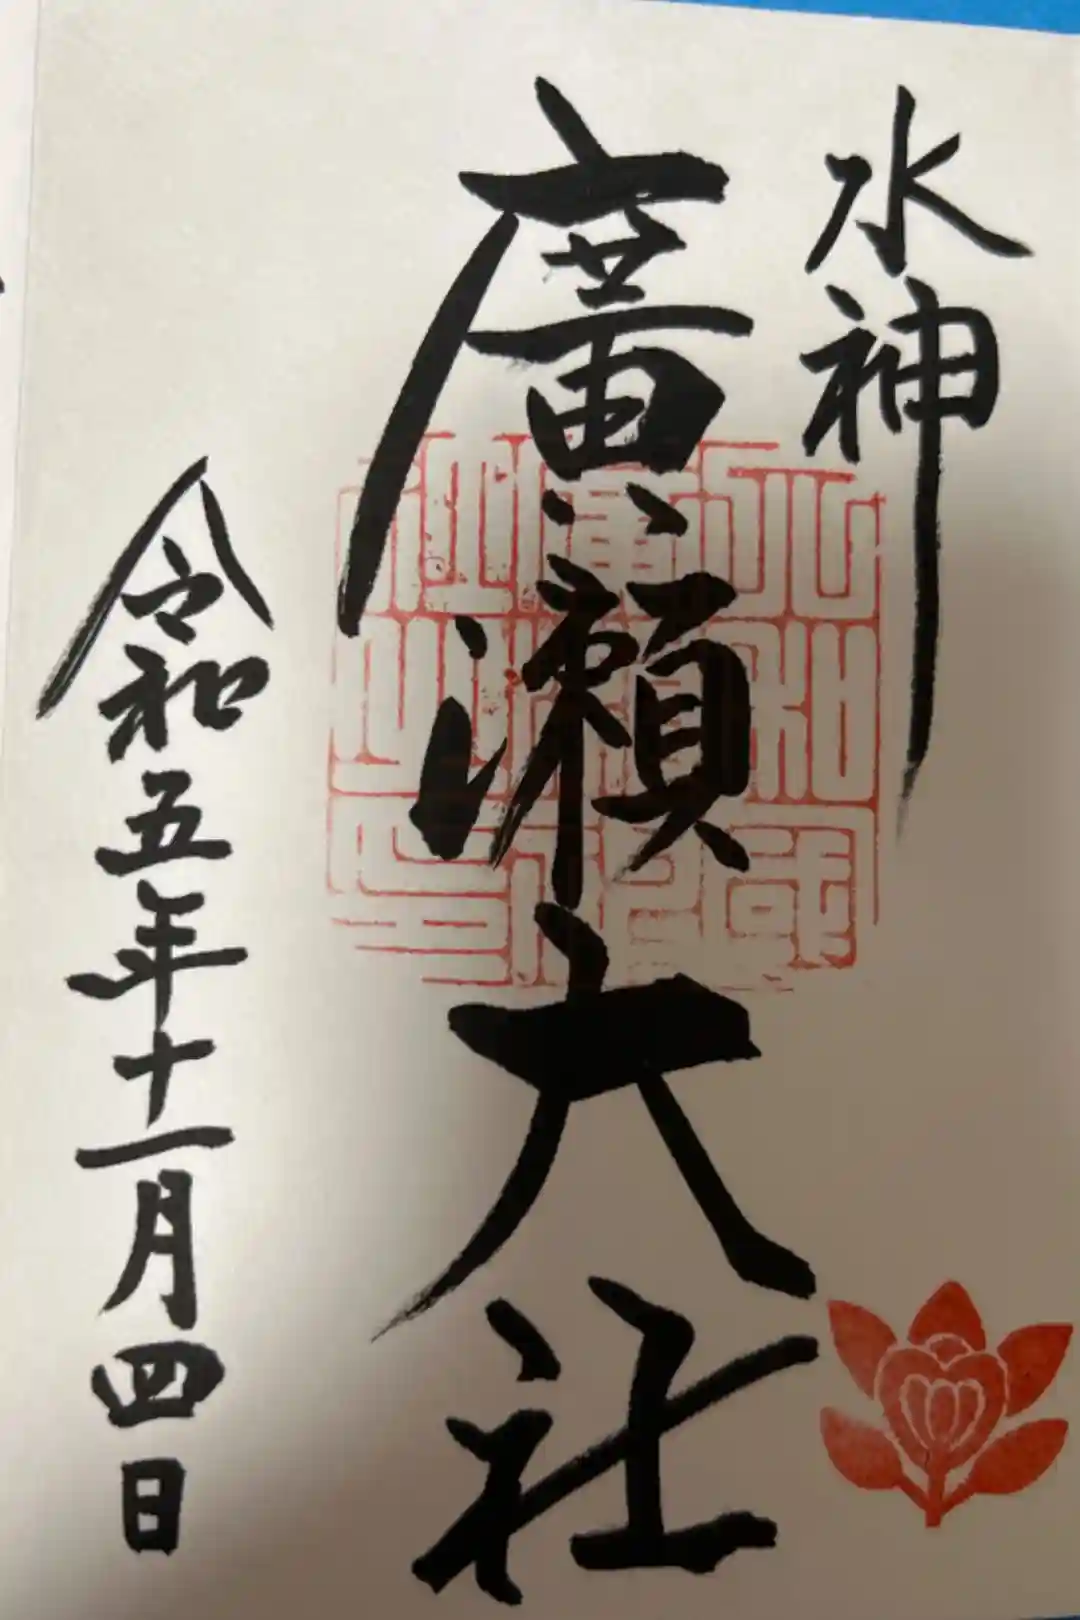 水神
廣瀬大社
令和五年十一月四日